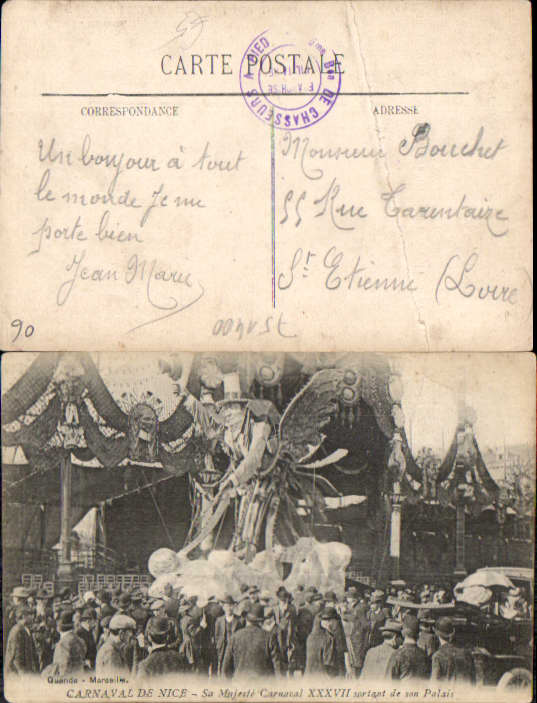 59
CARTE POSTALE
CHASSEURS A PIED
Bon DE
CORRESPONDANCE
ADRESSE
Un bonjour à tout
le monde Je me
porte bien
Jean Marie
Monsieur Bouchet
55 Rue Tarentaize
St Etienne (Loire)
90
Guende - Marseille.
CARNAVAL DE NICE - Sa Majesté Carnaval XXXVII sortant de son Palais